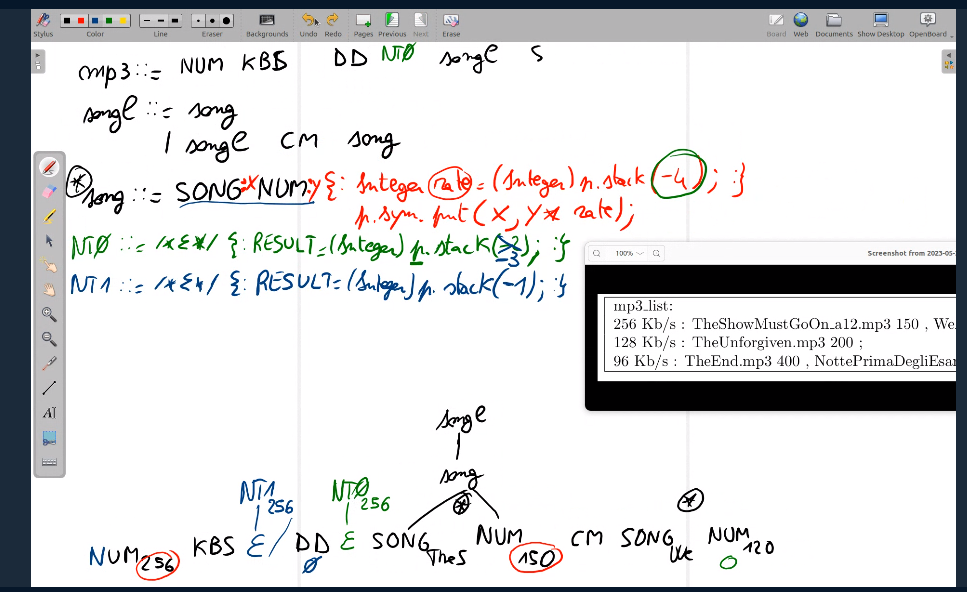 Stylus Color Line Eraser Backgrounds Undo Redo Pages Previous Next Erase Board Web Documents Show Desktop OpenBoard
mp3 ::= NUM KBS DD NTØ songl S
songl ::= song
| songl CM song
* song ::= SONG:x NUM:y {: Integer rate = (Integer) p.stack(-4); :}
p.sym.put(X, Y* rate);
NTØ ::= /*ε*/ {: RESULT=(Integer) p.stack(-3); :}
NT1 ::= /*ε*/ {: RESULT=(Integer) p.stack(-1); :}
100%
Screenshot from 2023-05-
mp3_list:
256 Kb/s : TheShowMustGoOn_a12.mp3 150 , We
128 Kb/s : TheUnforgiven.mp3 200 ;
96 Kb/s : TheEnd.mp3 400 , NottePrimaDegliEsa
AI
songl
song
NT1 256 NTØ 256 * *
NUM 256 KBS ε / DD Ø ε SONG TheS NUM 150 CM SONG We NUM 120